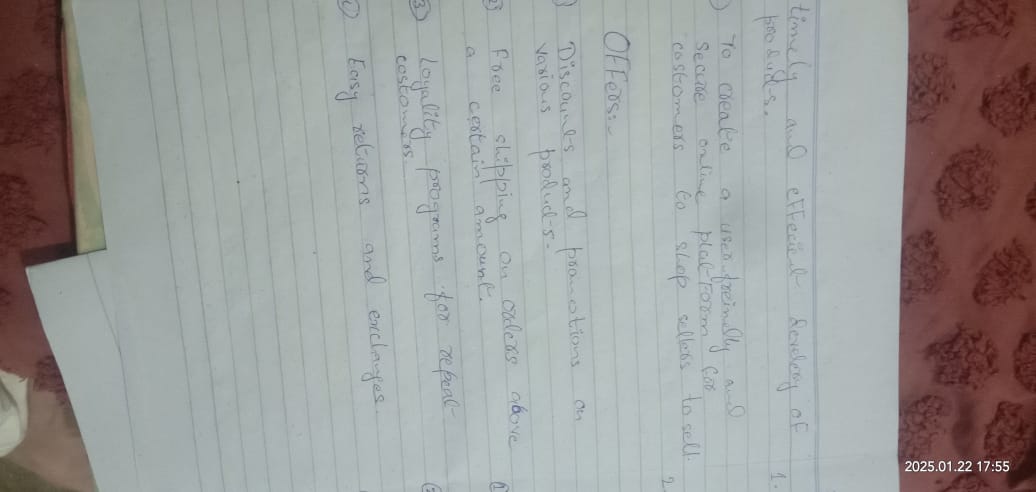 timely and effecint delevery of
products.
) To create a user freinelly and
secure online plat form for
costomers to shop sellers to sell.
Offers:-
) Discounts and promotions on
various products.
2) free shipping on orders above
a certain amount.
3) Loyality programs for repeat
costomers
Easy returns and exchanges.
1.
2.
2025.01.22 17:55